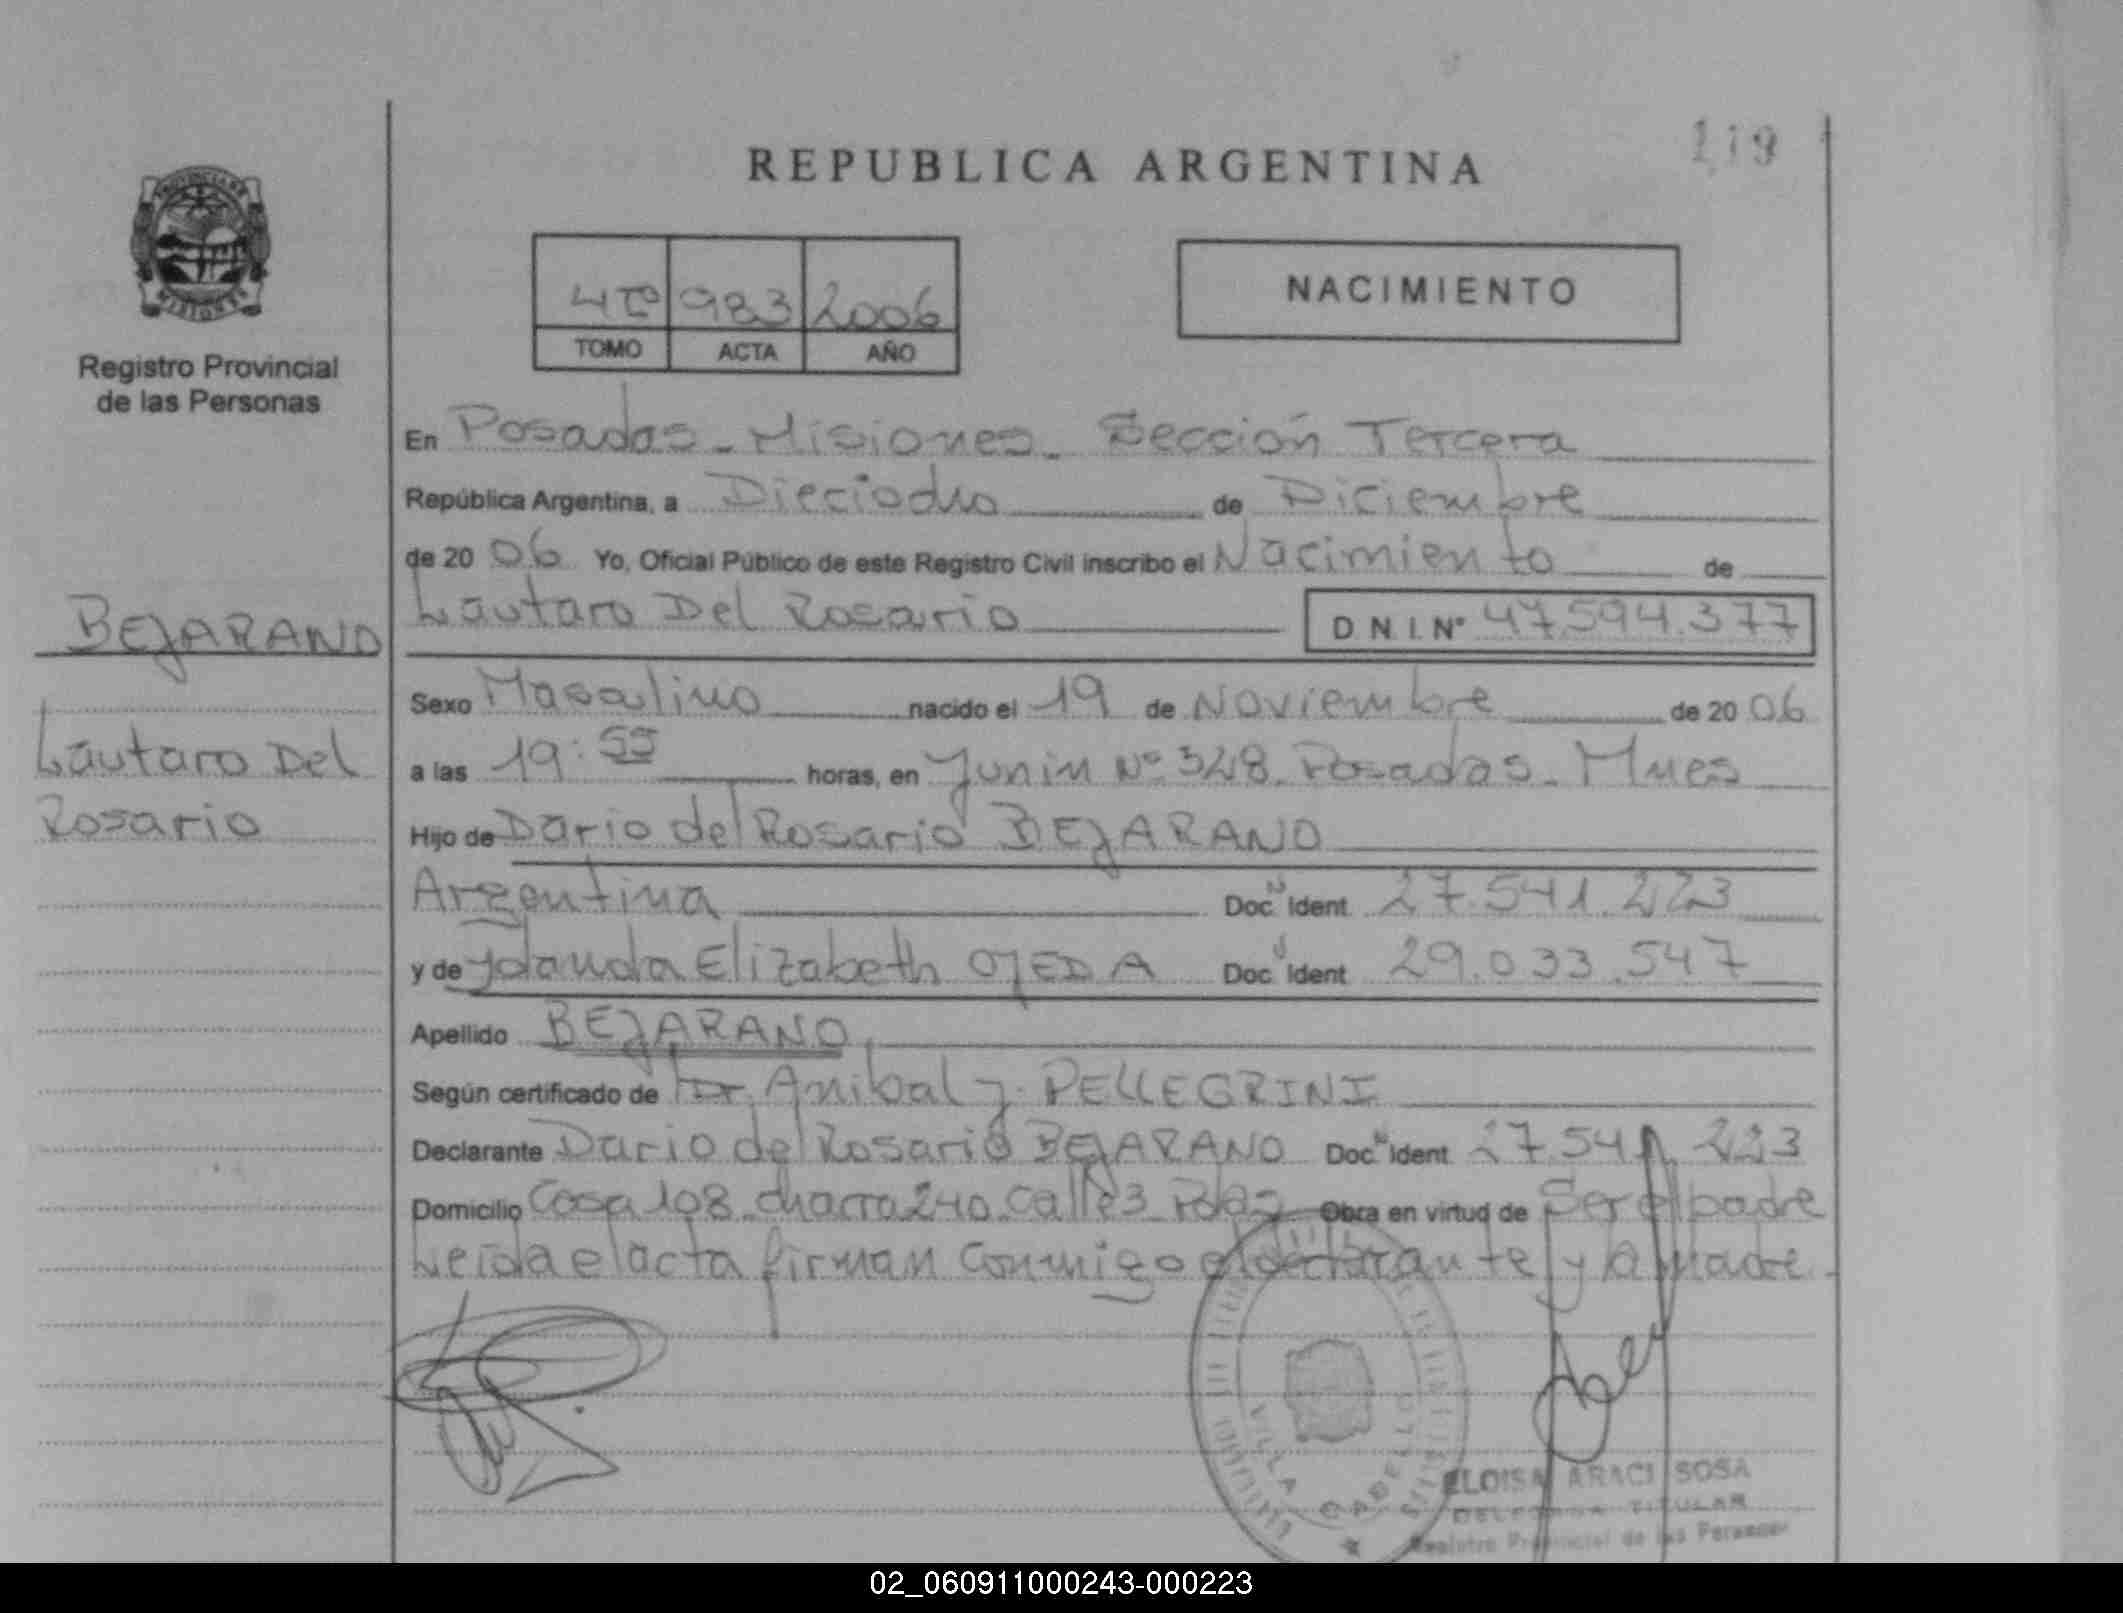 REPUBLICA ARGENTINA
219
PROVINCIA DE
MISIONES
Registro Provincial
de las Personas
4to 983 2006
TOMO ACTA AÑO
NACIMIENTO
En Posadas - Misiones - Sección Tercera
República Argentina, a Dieciocho de Diciembre
de 20 06 Yo, Oficial Público de este Registro Civil inscribo el Nacimiento de
Lautaro Del Rosario D.N.I. Nº 47.594.377
BEJARANO
Lautaro Del
Rosario
Sexo Masculino nacido el 19 de Noviembre de 20 06
a las 19:55 horas, en Junin Nº 328 Posadas - Mnes
Hijo de Dario del Rosario BEJARANO
Argentina Doc. Ident 27.541.223
y de Yolanda Elizabeth OJEDA Doc. Ident 29.033.547
Apellido BEJARANO
Según certificado de Dr. Anibal J. PELLEGRINI
Declarante Dario del Rosario BEJARANO Doc. Ident 27.541.223
Domicilio Casa 108 chacra 240 calle 3 Pdas Obra en virtud de Ser el padre
Leida el acta firman conmigo el declarante y la madre.
VILLA CABELLO
ELOISA ARACI SOSA
DELEGADA TITULAR
Registro Provincial de las Personas
02_060911000243-000223